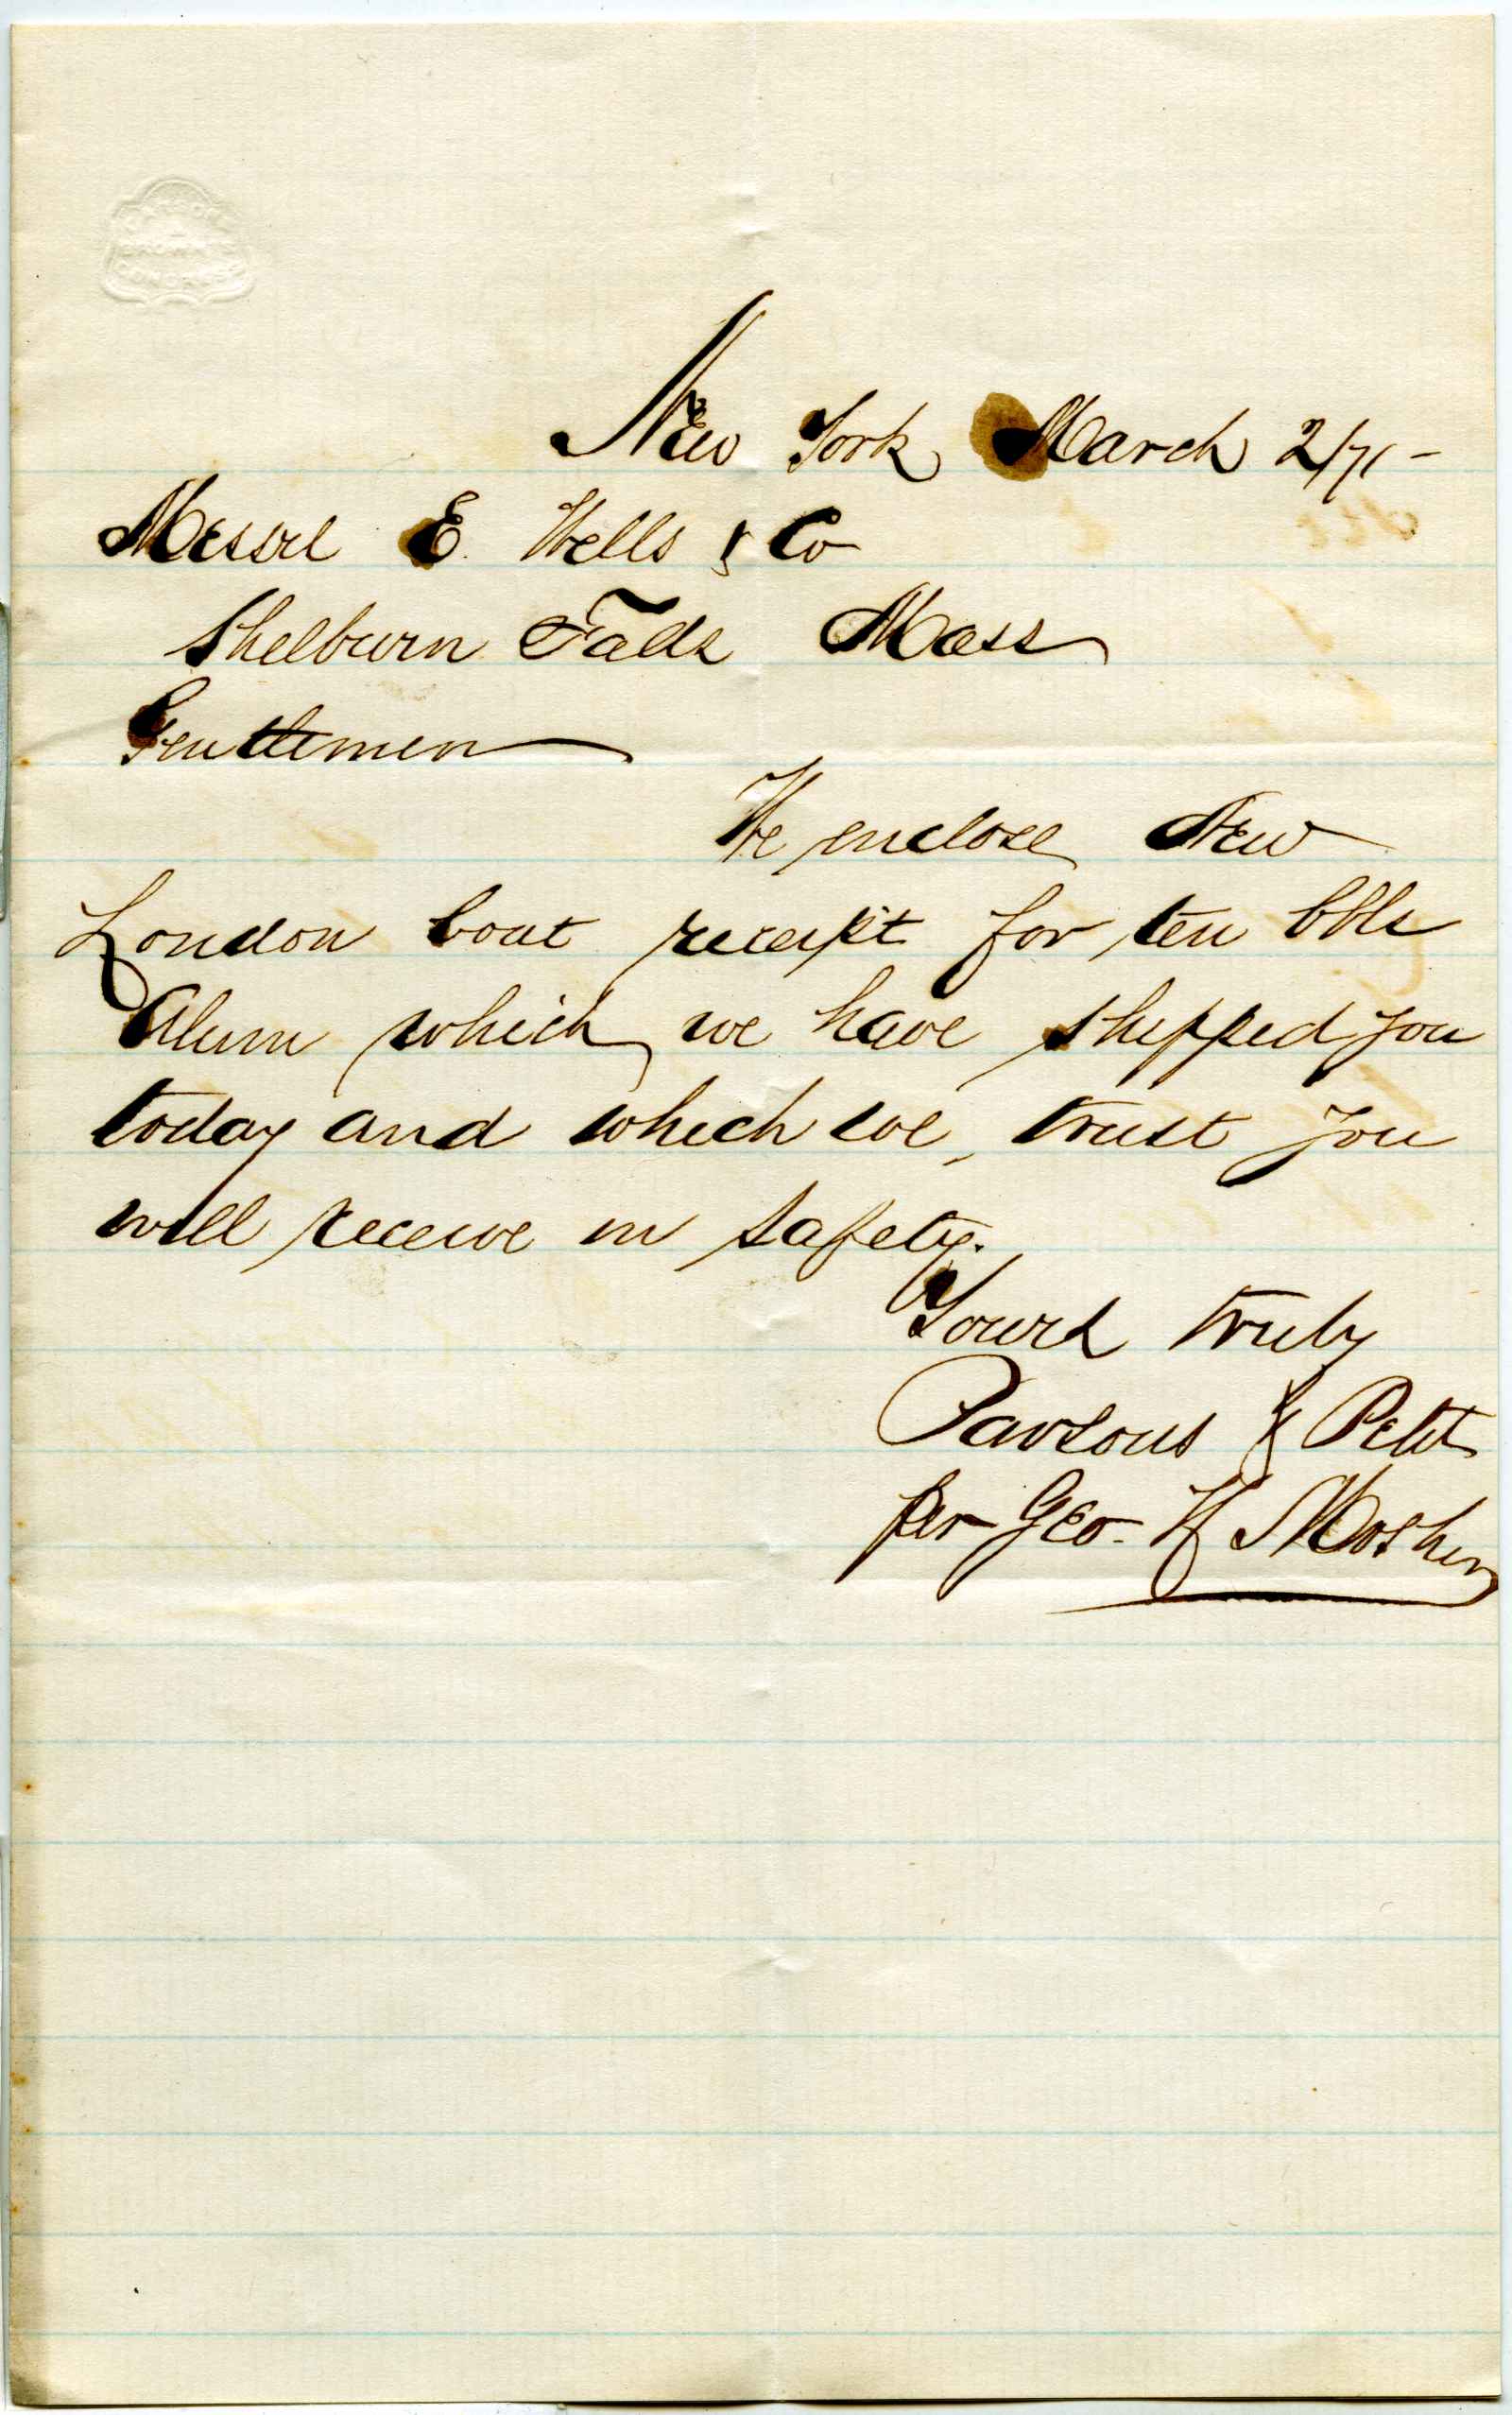 New York March 2/71 -
Messrs E. Wells & Co
Shelburn Falls Mass
Gentlemen
We enclose New
London boat receipt for ten bbls
Alum which we have shipped you
today and which we trust you
will receive in safety.
Yours truly
Parsons & Petit
per Geo. H Mosher